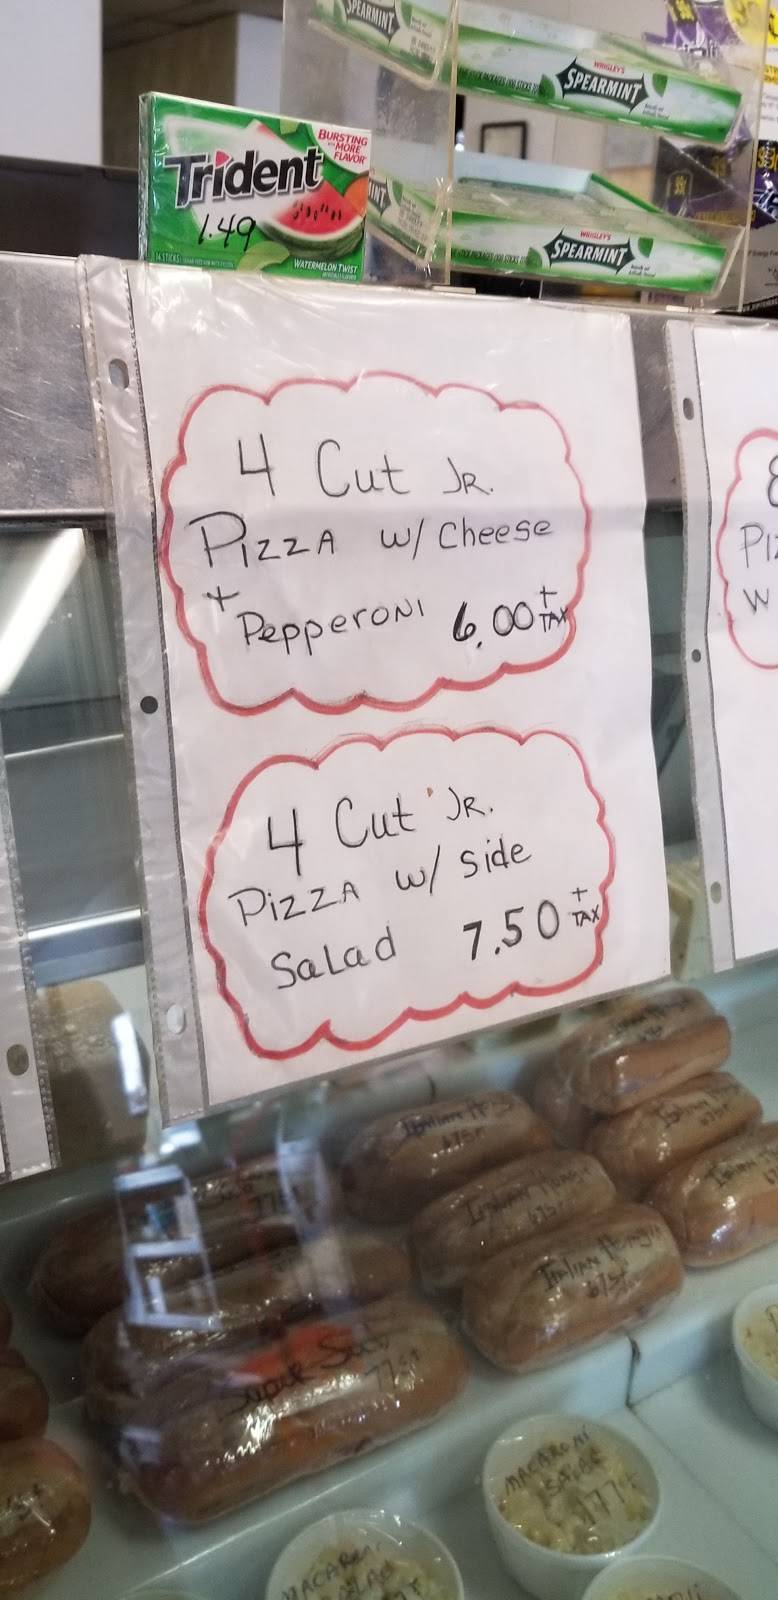 SPEARMINT
WRIGLEY'S
SPEARMINT
BURSTING
WITH MORE
FLAVOR
Trident
1.49
14 STICKS
WATERMELON TWIST
WRIGLEY'S
SPEARMINT
4 Cut JR.
PIZZA w/ Cheese
+ Pepperoni 6.00 + TAX
4 Cut JR.
PIZZA w/ side
Salad 7.50 + TAX
8
PIZ
W
Italian
Italian
Italian
Super Sub
MACARONI
SALAD
177+
MACARONI
SALAD